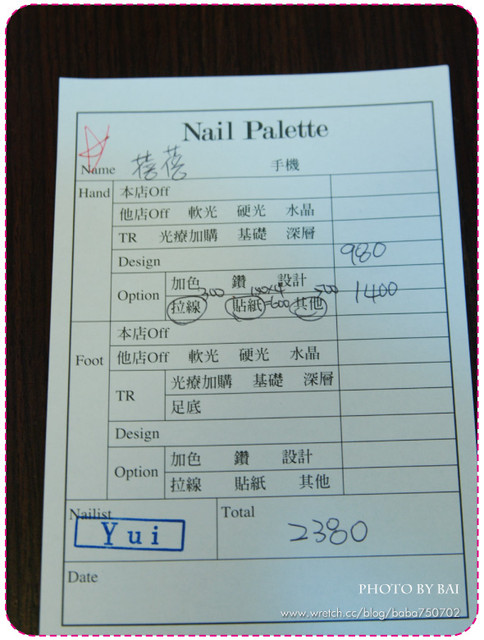 Nail Palette
Name 蓓蓓 手機
Hand 本店Off
他店Off 軟光 硬光 水晶
TR 光療加購 基礎 深層
Design 980
Option 加色 鑽 設計
300 150x4=600 500
拉線 貼紙 其他 1400
Foot 本店Off
他店Off 軟光 硬光 水晶
TR 光療加購 基礎 深層
足底
Design
Option 加色 鑽 設計
拉線 貼紙 其他
Nailist Yui Total 2380
Date
PHOTO BY BAI
www.wretch.cc/blog/baba750702